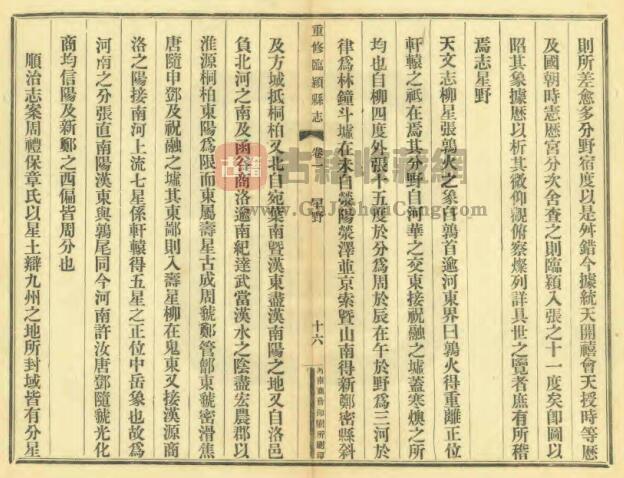 則所差愈多分野宿度以是舛錯今據統天開禧會天授時等曆
及國朝時憲曆宮分次舍查之則臨潁入張之十一度矣卽圖以
昭其象據曆以析其微仰觀俯察燦列詳具世之覽者庶有所稽
焉志星野
天文志柳星張鶉火之象自鶉首逾河東界曰鶉火得重離正位
軒轅之祗在焉其分野自河華之交東接祝融之墟蓋寒燠之所
均也自柳四度外張十五度於分爲周於辰在午於野爲三河於
律爲林鐘斗墟在未自滎陽滎澤並京索暨山南得新鄭密縣斜
重修臨潁縣志
卷一
星野
十六
及方城抵桐柏又北自宛葉南暨漢東盡漢南陽之地又自洛邑
負北河之南及函谷商洛逾南紀達武當漢水之陰盡宏農郡以
淮源桐柏東陽爲限而東屬壽星古成周虢鄭管鄶東虢密滑焦
唐隨申鄧及祝融之墟其東鄙則入壽星柳在鬼東又接漢源商
洛之陽接南河上流七星係軒轅得五星之正位中岳象也故爲
河南之分張直南陽漢東與鶉尾同今河南許汝唐鄧隨虢光化
商均信陽及新鄭之西偏皆周分也
順治志案周禮保章氏以星土辯九州之地所封域皆有分星
古籍收藏網
www.GuJiShouCang.com